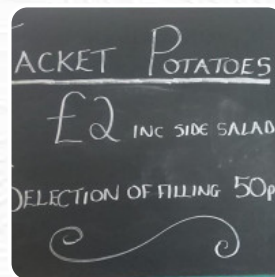 JACKET POTATOES
£2 INC SIDE SALAD
SELECTION OF FILLING 50p